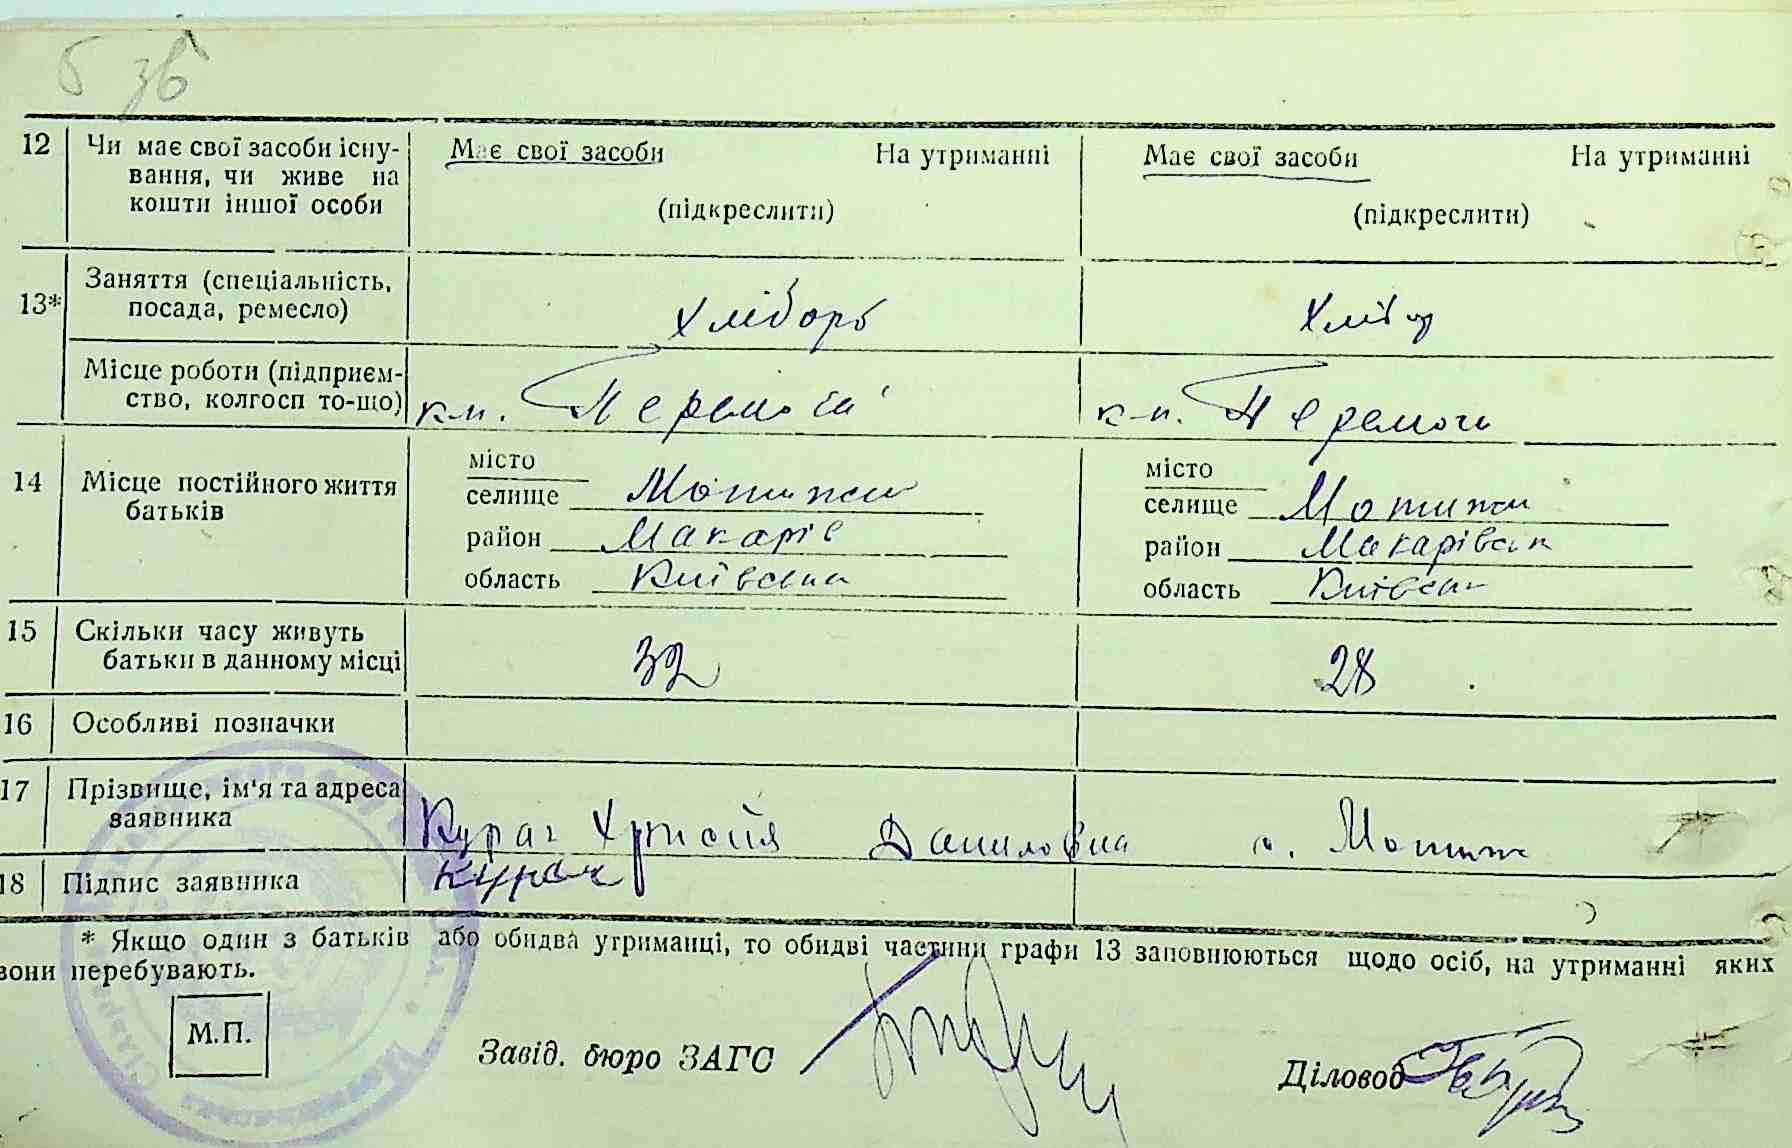 б зв
12 Чи має свої засоби існу- Має свої засоби На утриманні Має свої засоби На утриманні
вання, чи живе на
кошти іншої особи (підкреслити) (підкреслити)
13* Заняття (спеціальність, Хлібороб Хліб
посада, ремесло)
Місце роботи (підприєм- Перемога Перемога
ство, колгосп то-що)
14 Місце постійного життя місто місто
батьків селище Мотижин селище Мотижи
район Макарів район Макарівськ
область Київська область Київськ
15 Скільки часу живуть 32 28
батьки в данному місці
16 Особливі позначки
17 Прізвище, ім'я та адреса
заявника Курач Христя Даниловна с. Мотиж
18 Підпис заявника Курач
* Якщо один з батьків або обидва утриманці, то обидві частини графи 13 заповнюються щодо осіб, на утриманні яких
вони перебувають.
М.П. Завід. бюро ЗАГС Діловод